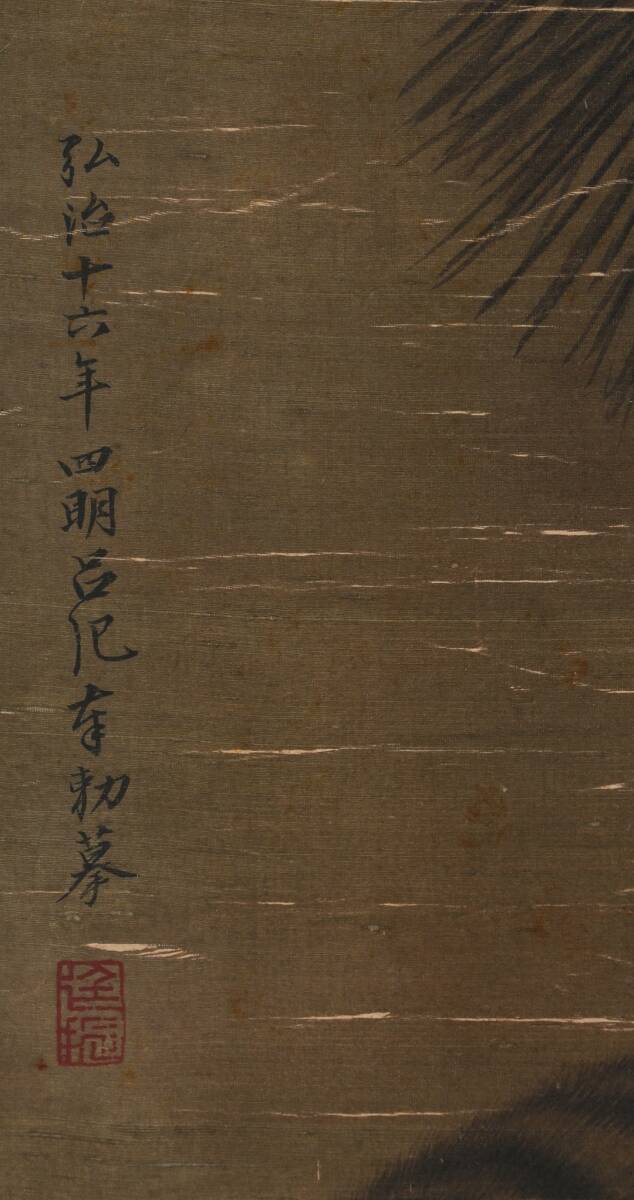 弘治十六年四明吕纪奉勅摹